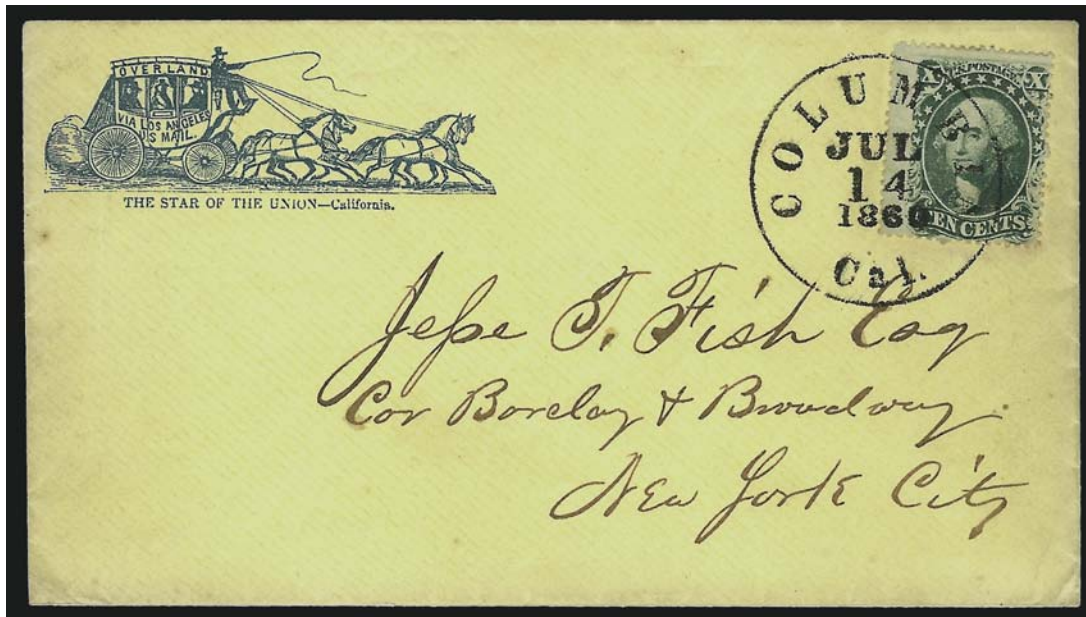 OVERLAND
VIA LOS ANGELES
U S MAIL.
THE STAR OF THE UNION—California.
COLUMBIA
JUL
14
1860
Cal.
U.S. POSTAGE
X X
TEN CENTS
Jesse T. Fish Esq
Cor Barclay & Broadway
New York City